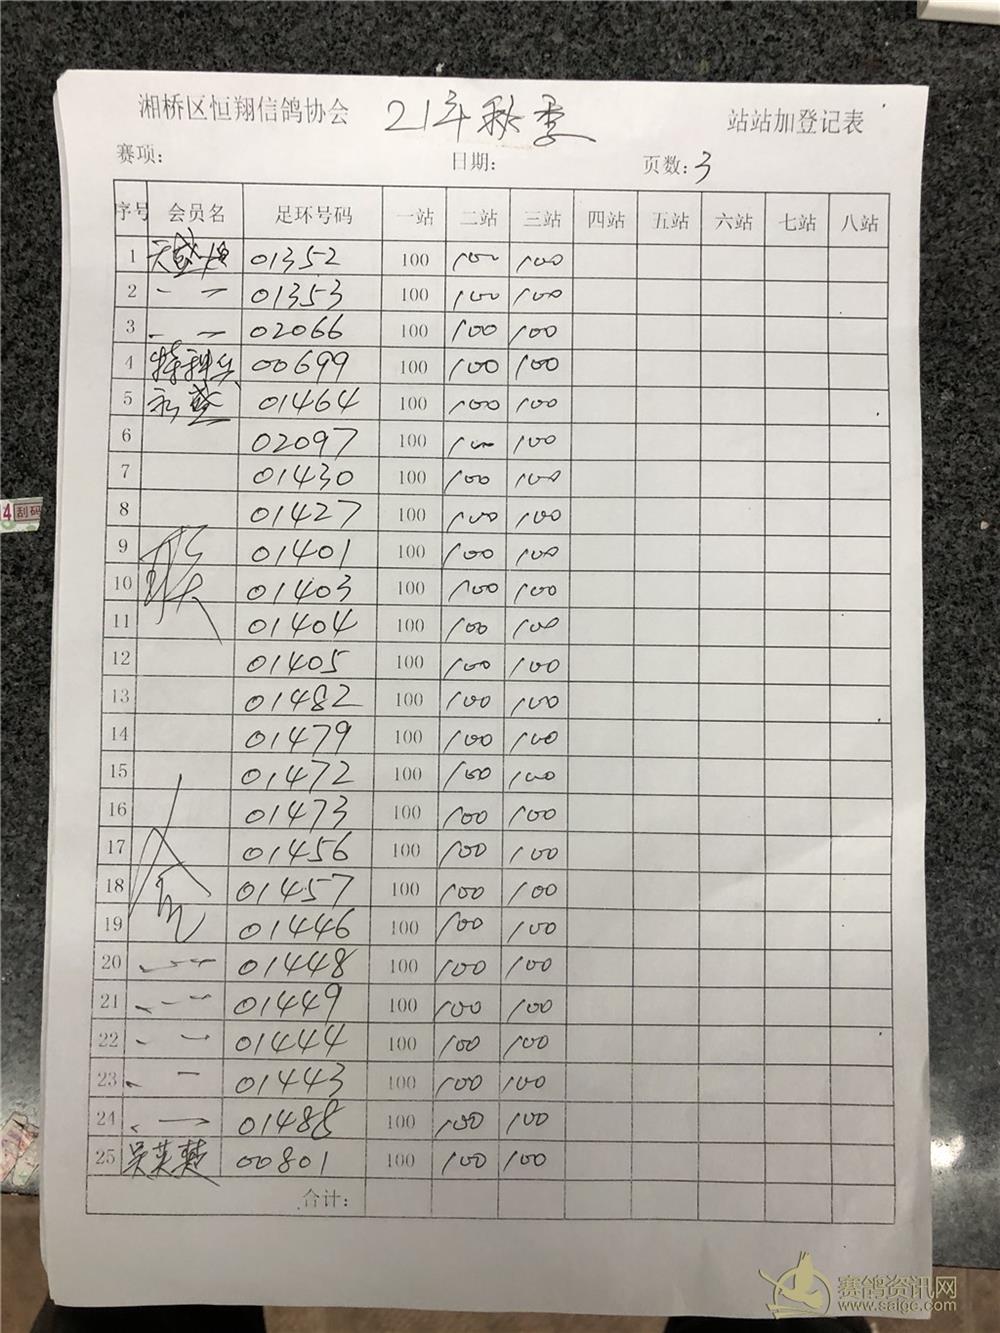 湘桥区恒翔信鸽协会 21年秋季 站站加登记表
赛项: 日期: 页数:3
序号 会员名 足环号码 一站 二站 三站 四站 五站 六站 七站 八站
1 天盛 01352 100 100 100
2 〃 01353 100 100 100
3 〃 02066 100 100 100
4 特种兵 00699 100 100 100
5 永盛 01464 100 100 100
6 02097 100 100 100
7 01430 100 100 100
8 01427 100 100 100
9 联 01401 100 100 100
10 01403 100 100 100
11 01404 100 100 100
12 01405 100 100 100
13 01482 100 100 100
14 01479 100 100 100
15 01472 100 100 100
16 01473 100 100 100
17 01456 100 100 100
18 01457 100 100 100
19 01446 100 100 100
20 〃 01448 100 100 100
21 〃 01449 100 100 100
22 〃 01444 100 100 100
23 〃 01443 100 100 100
24 〃 01488 100 100 100
25 吴英 00801 100 100 100
合计:
4 刮码
赛鸽资讯网
www.saige.com